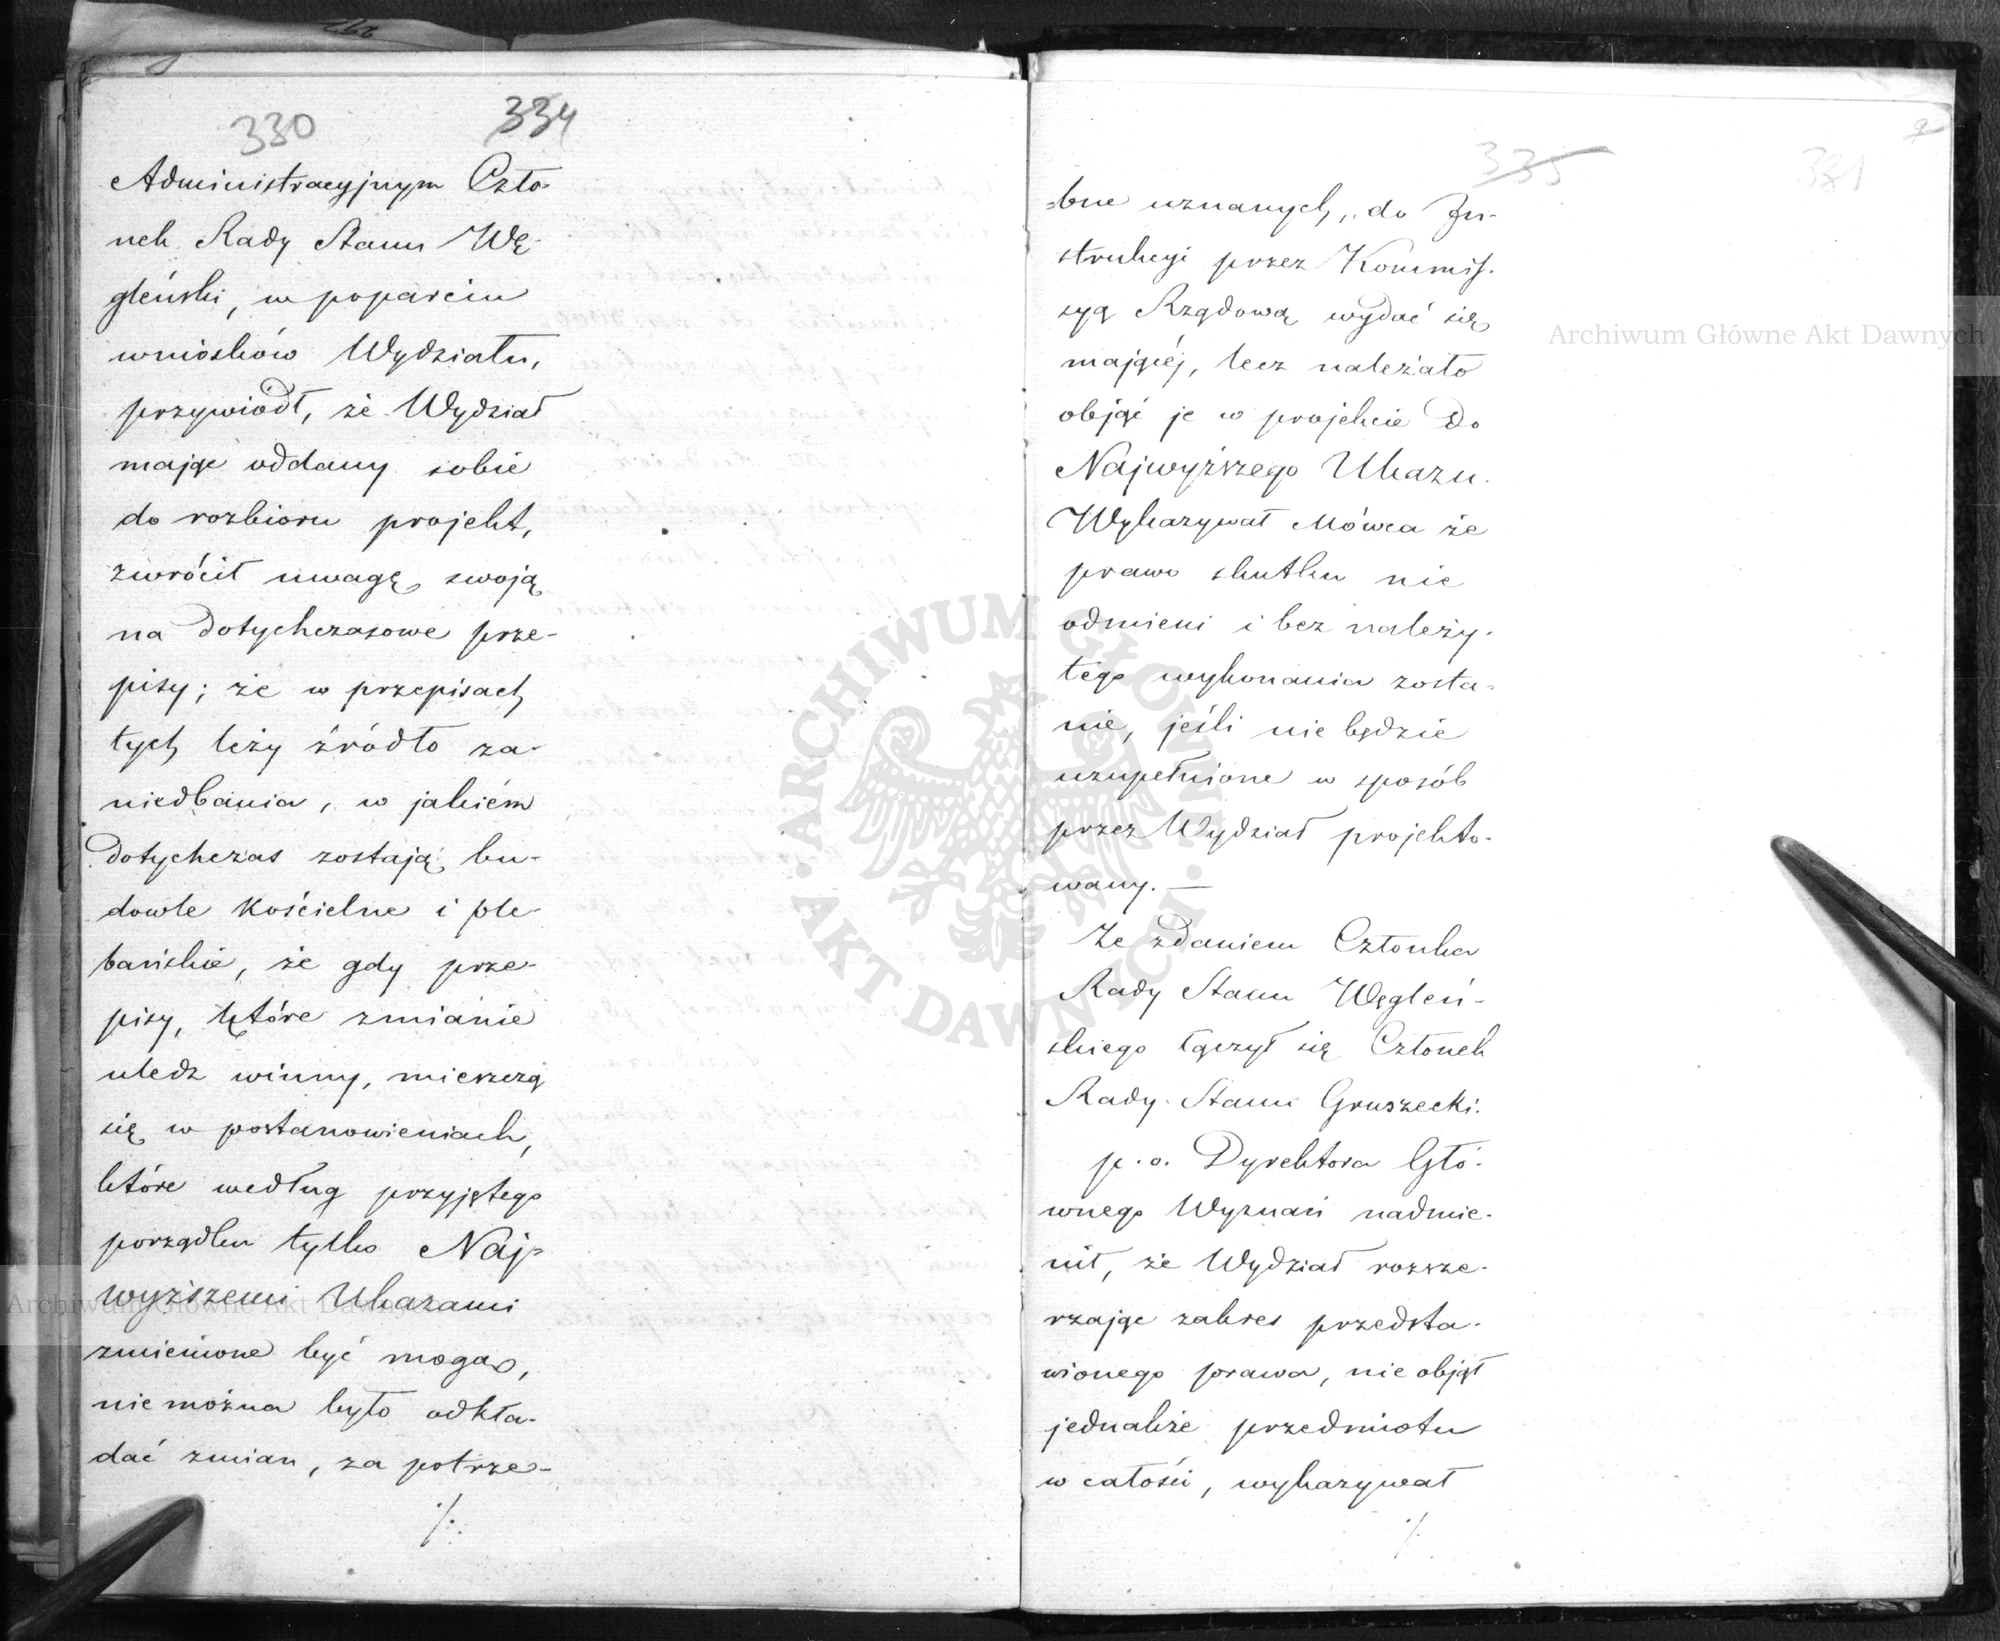 330 334
Administracyjnym Czło-
nek Rady Stanu Wę-
gleński, w poparciu
wniosków Wydziału,
przywiódł, że Wydział
mając oddany sobie
do rozbioru projekt,
zwrócił uwagę swoją
na dotychczasowe prze-
pisy; że w przepisach
tych leży źródło za-
niedbania, w jakiém
dotychczas zostają bu-
dowle kościelne i ple-
bańskie, że gdy prze-
pisy, które zmianie
uledz winny, mieszczą
się w postanowieniach,
które według przyjętego
porządku tylko Naj-
wyższemi Ukazami
zmienione być mogą,
nie można było odkła-
dać zmian, za potrze-
./.
335 381
-bne uznanych, do In-
strukcyi przez Kommis-
syą Rządową wydać się
mającéj, lecz należało
objąć je w projekcie do
Najwyższego Ukazu.
Wykazywał Mówca że
prawo skutku nie
odmieni i bez należy-
tego wykonania zosta-
nie, jeśli nie będzie
uzupełnione w sposób
przez Wydział projekto-
wany. —
Ze zdaniem Członka
Rady Stanu Węgleń-
skiego łączył się Członek
Rady Stanu Gruszecki.
p. o. Dyrektora Głó-
wnego Wyznań nadmie-
nił, że Wydział rozsze-
rzając zakres przedsta-
wionego prawa, nie objął
jednakże przedmiotu
w całości, wykazywał
./.
Archiwum Główne Akt Dawnych
Archiwum Główne Akt Dawnych
ARCHIWUM GŁÓWNE AKT DAWNYCH